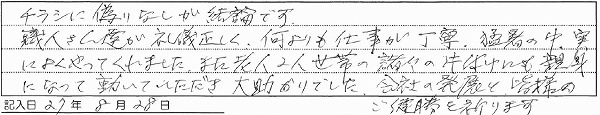 チラシに偽りなしが結論です.
職人さん達が礼儀正しく、何よりも仕事が丁寧. 猛暑の中、実
によくやってくれました. また老人2人世帯の諸々の片付けにも親身
になって動いていただき大助かりでした. 会社の発展と皆様の
記入日27年8月28日
ご健勝を祈ります